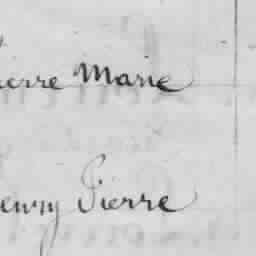 ierre Marie
enry Pierre